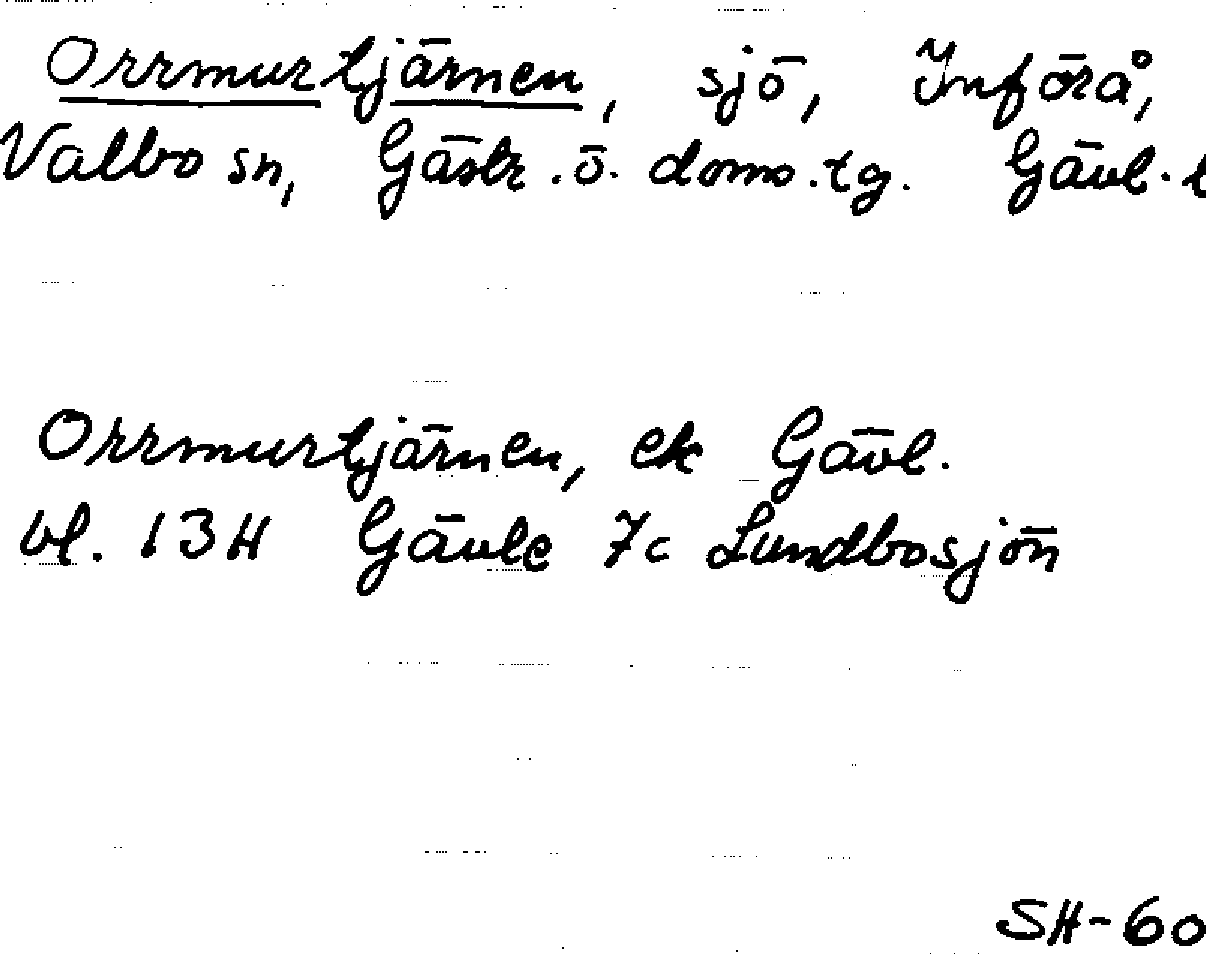 Orrmurtjärnen, sjö, Införå,
Valbo sn, Gästr. ö. doms.tg. Gävl. l
Orrmurtjärnen, ek Gävl.
bl. 13H Gävle 7c Lundbosjön
SH-60